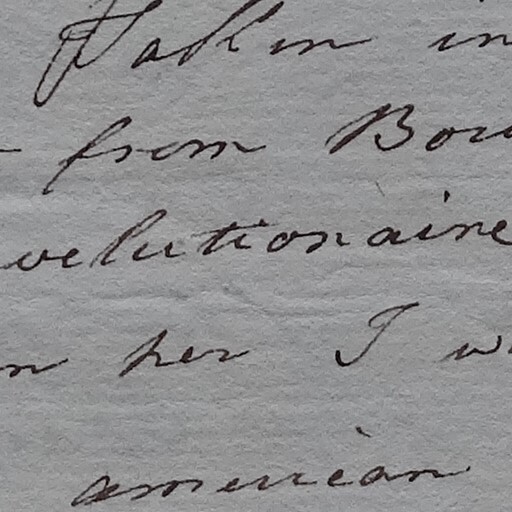 Taken in
from Bou
volutionaire
n her I w
american